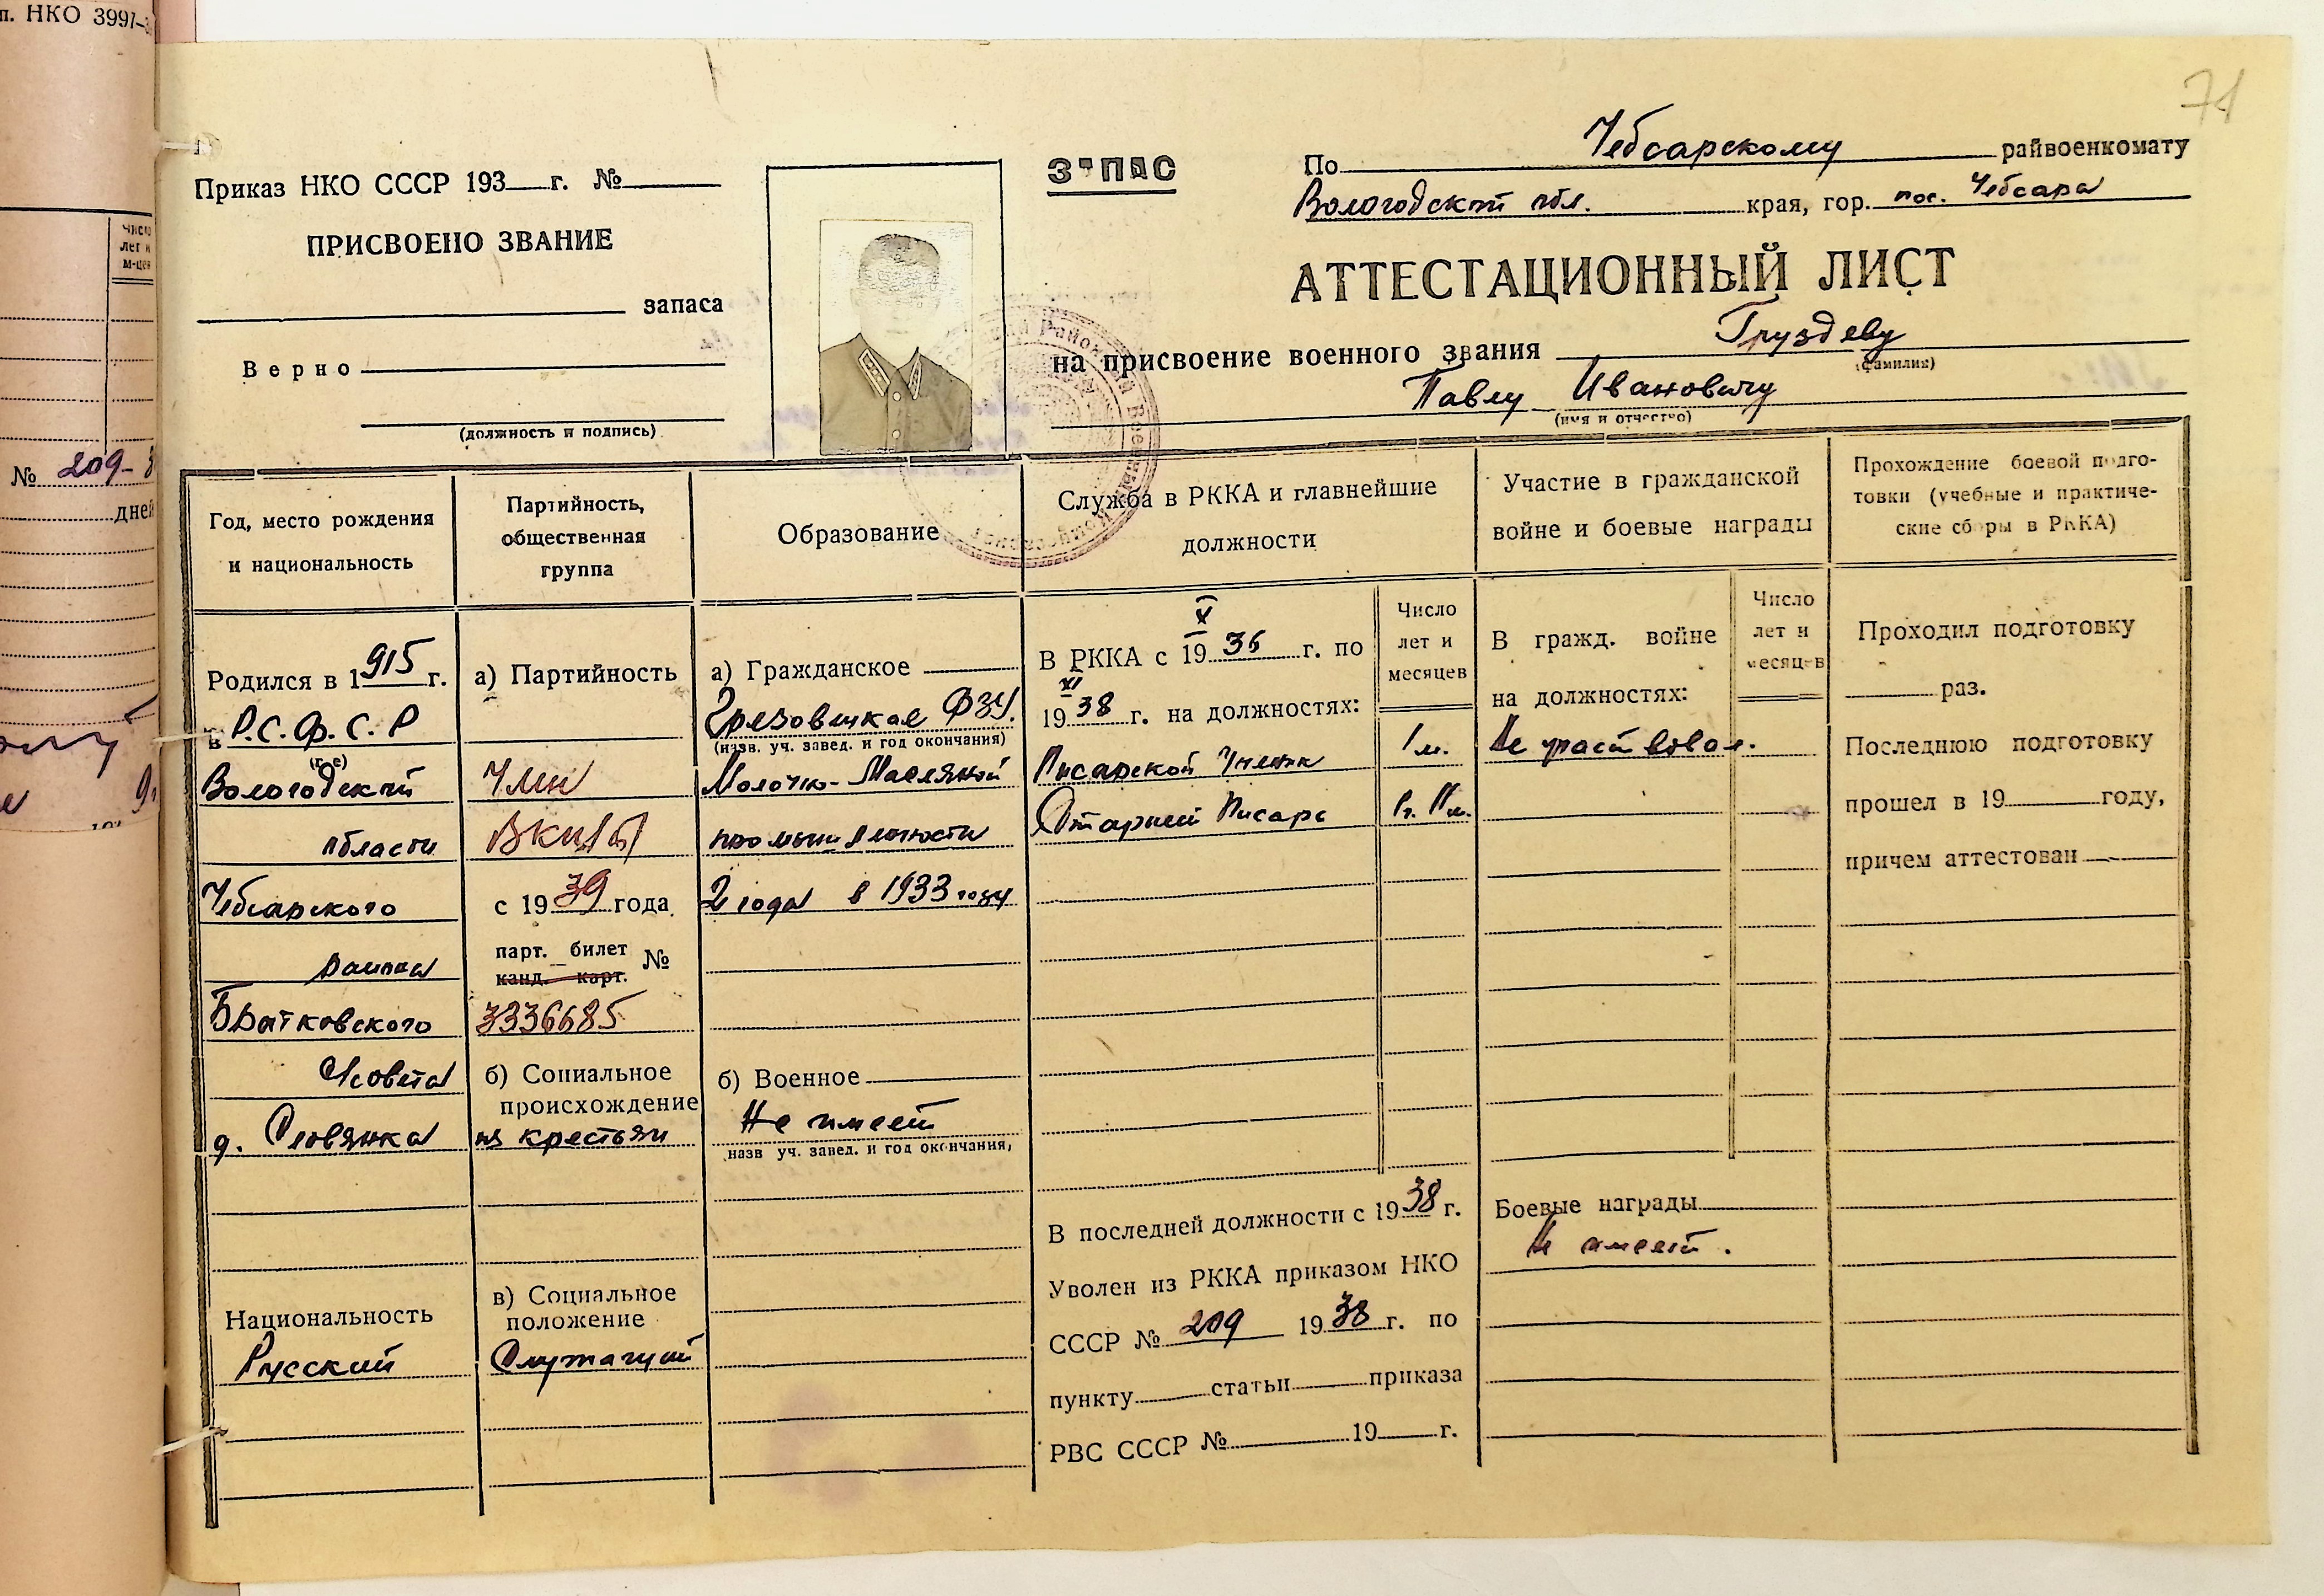 п. НКО 3997
число
лет и
м-цев
№ 209-
дней
71
Приказ НКО СССР 193 г. №
ПРИСВОЕНО ЗВАНИЕ
запаса
Верно
(должность и подпись)
ЗАПАС
По Чебсарскому райвоенкомату
Вологодской обл. края, гор. пос. Чебсара
АТТЕСТАЦИОННЫЙ ЛИСТ
на присвоение военного звания Груздеву
(фамилия)
Павлу Ивановичу
(имя и отчество)
Год, место рождения
и национальность
Родился в 1915 г.
в Р.С.Ф.С.Р
(где)
Вологодский
области
Чебсарского
района
совета
д. Словянка
Национальность
Русский
Партийность,
общественная
группа
а) Партийность
Член
ВКП(б)
с 1939 года
парт. билет
канд. карт. №
3336685
б) Социальное
происхождение
из крестьян
в) Социальное
положение
Служащий
Образование
а) Гражданское
Грязовецкое ФЗУ.
(назв. уч. завед. и год окончания)
Молочно-Масляной
промышленности
2 года в 1933 году
б) Военное
Не имеет
назв уч. завед. и год окончания,
Служба в РККА и главнейшие
должности
X
В РККА с 1936 г. по
XI
1938 г. на должностях:
Число
лет и
месяцев
Писарской Ученик 1 м.
Старший Писарь
В последней должности с 1938 г.
Уволен из РККА приказом НКО
СССР № 209 1938 г. по
пункту статьи приказа
РВС СССР № 19 г.
Участие в гражданской
войне и боевые награды
В гражд. войне
на должностях:
Число
лет и
месяцев
Не участвовал.
Боевые награды
Не имеет.
Прохождение боевой подго-
товки (учебные и практиче-
ские сборы в РККА)
Проходил подготовку
раз.
Последнюю подготовку
прошел в 19 году,
причем аттестован